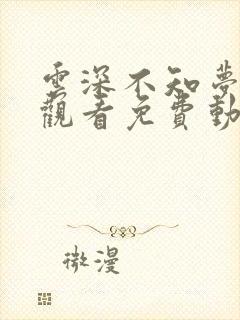 雲深不知夢
觀看免費動
微漫